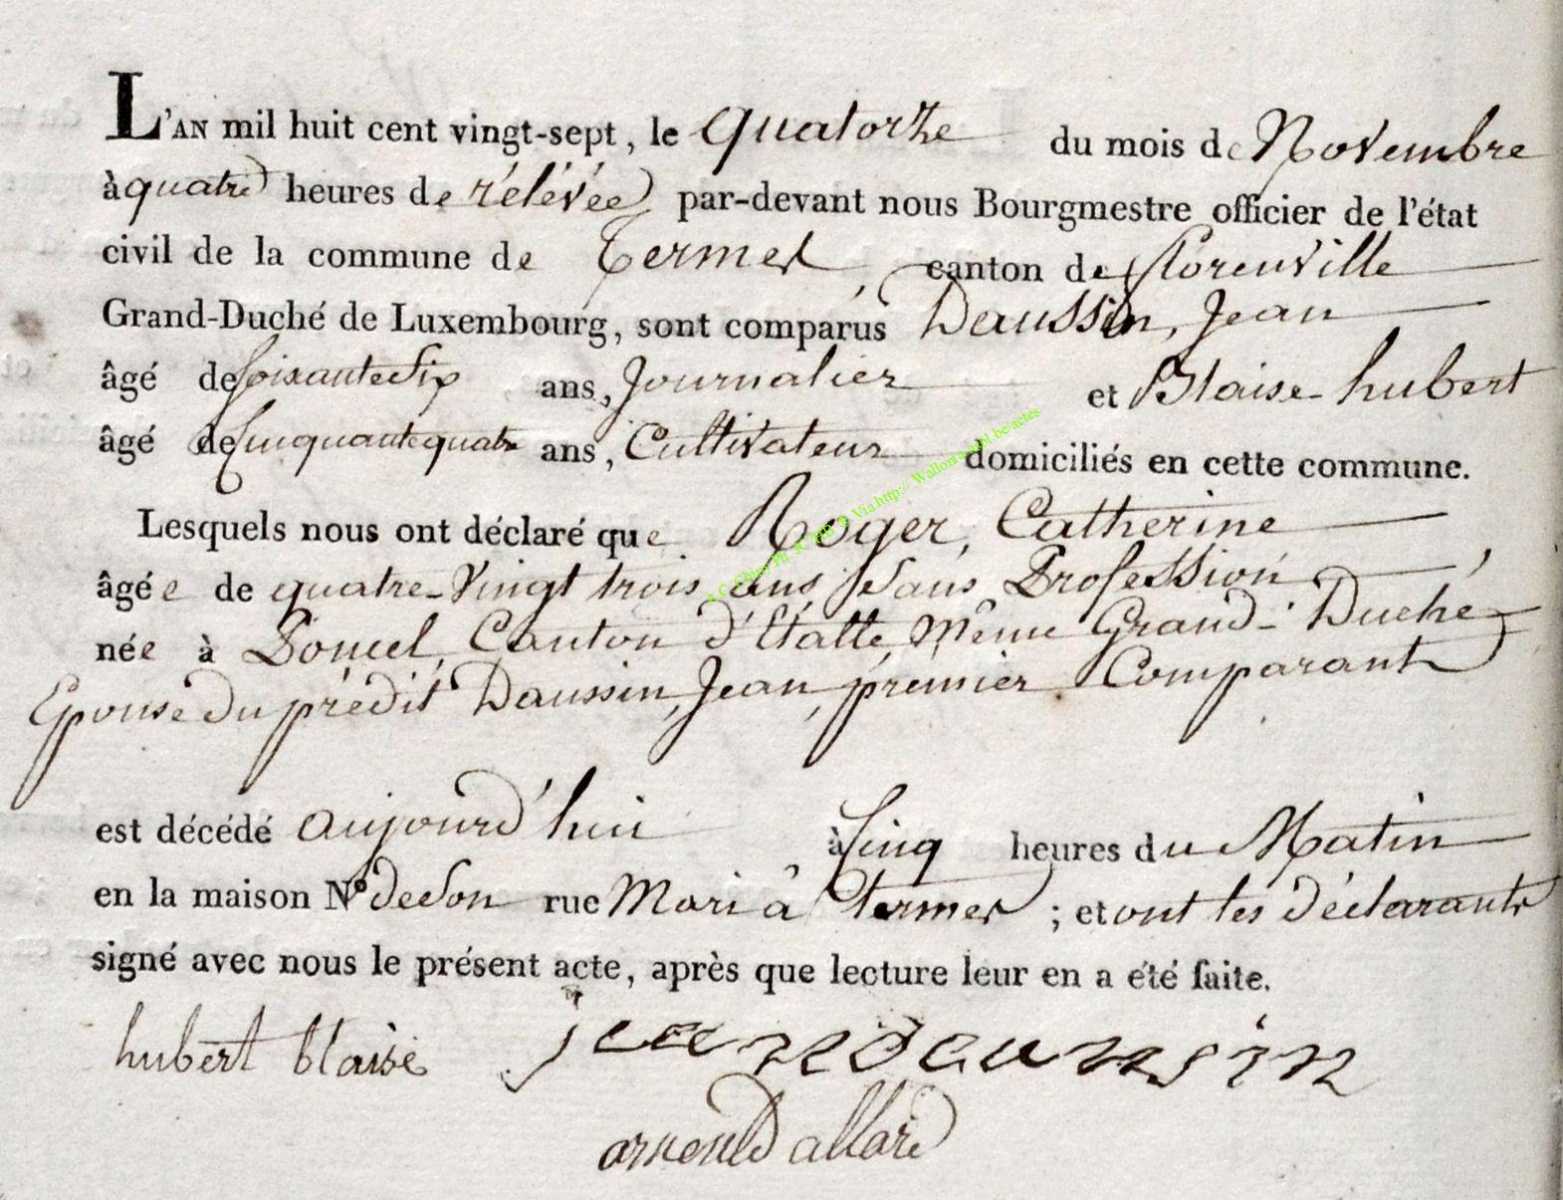 L'AN mil huit cent vingt-sept, le quatorze du mois de Novembre
à quatre heures de rélévée par-devant nous Bourgmestre officier de l'état
civil de la commune de Termes, canton de florenville
Grand-Duché de Luxembourg, sont comparus Daussin, Jean
âgé de soixante Six ans, Journalier et Blaise hubert
âgé de Cinquante quatre ans, Cultivateur domiciliés en cette commune.
Lesquels nous ont déclaré que Roger, Catherine
âgée de quatre-Vingt trois ans Sans Profession
née à Poncel, Canton d'Etalle, Même Grand-Duché
Epouse du prédit Daussin, Jean, prémier Comparant
est décédé aujourd'hui à Cinq heures du Matin
en la maison N° de Son rue Mari à termes ; et ont les déclarants
signé avec nous le présent acte, après que lecture leur en a été faite.
hubert blaise jean daunsin
arnould allard